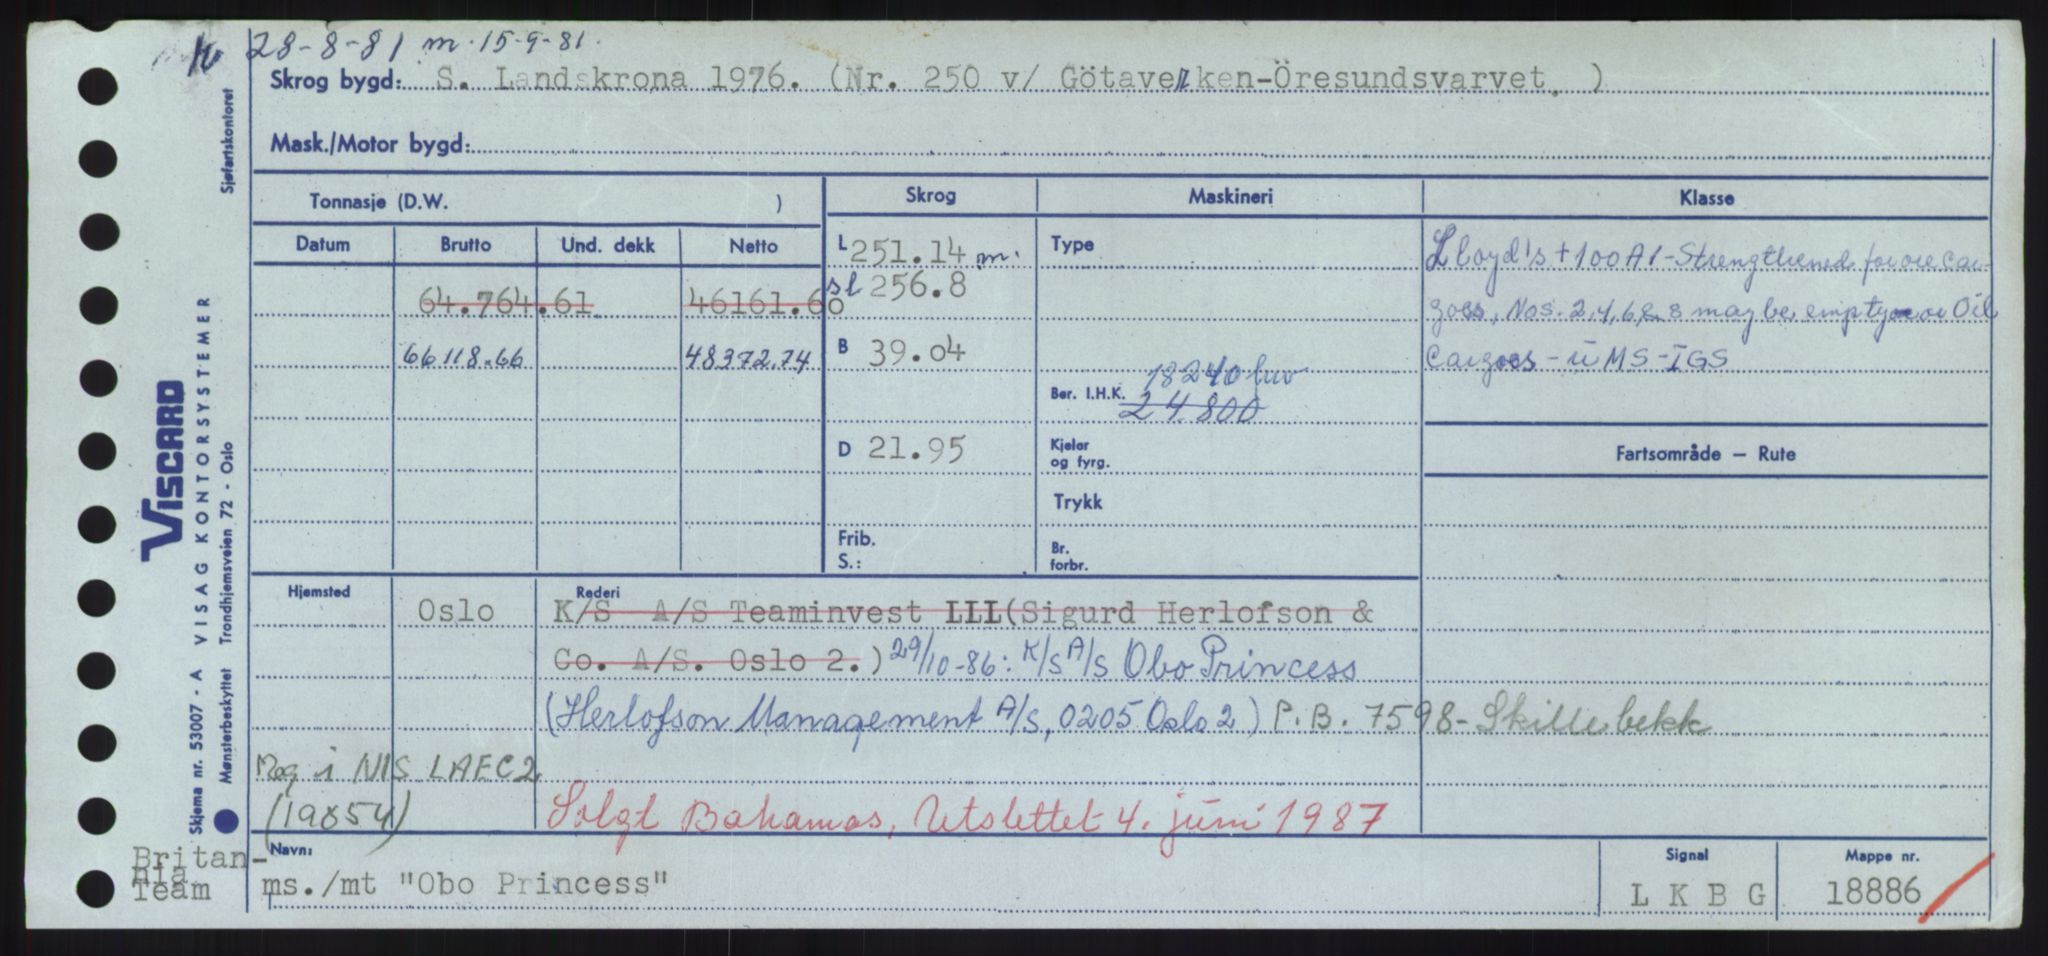 28-8-81 m. 15-9-81.
Skrog bygd: S. Landskrona 1976. (Nr. 250 v/ Götaverken-Öresundsvarvet. )
Mask./Motor bygd:
Tonnasje (D.W. )
Skrog
Maskineri
Klasse
Datum Brutto Und. dekk Netto
64.764.61 46161.60
66118.66 48372.74
L 251.14 m.
sl 256.8
B 39.04
D 21.95
Frib.
S.:
Type
18240 hk
Ber. I.H.K. 24.800
Kjeler
og fyrg.
Trykk
Br.
forbr.
Lloyd's +100A1-Strengthened for ore car-
goes, Nos. 2,4,6,& 8 may be empty or Oil
Cargoes - UMS - IGS
Fartsområde – Rute
Hjemsted
Rederi
Oslo K/S A/S Teaminvest LLL(Sigurd Herlofson &
Co. A/S. Oslo 2.) 29/10-86: K/S A/S Obo Princess
(Herlofson Management A/S, 0205 Oslo 2) P.B. 7598- Skillebekk
Reg i NIS LAFC2
(19854)
Solgt Bahamas, Utslettet 4. juni 1987
Navn:
ms./mt "Obo Princess"
Signal
L K B G
Mappe nr.
18886
Britan-
nia
Team
Sjøfartskontoret
VISCARD
VISAG KONTORSYSTEMER
Trondhjemsveien 72 - Oslo
Skjema nr. 53007 - A
Mønsterbeskyttet